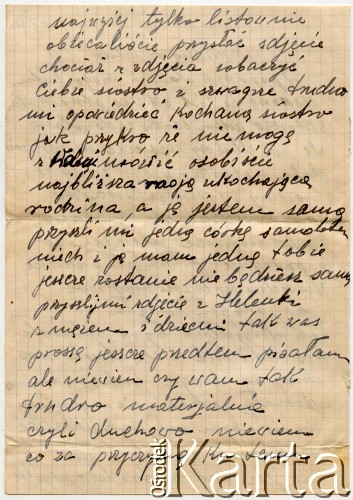 najwyżej tylko listownie
obiecaliście przysłać zdjęcie
chociaż z zdjęcia zobaczyć
Ciebie siostro i szwagra trudno
mi opowiedzieć Kochana siostro
jak przykro że nie mogą
z wami mówić osobiście
najbliższa moją ukochającą
rodziną, a ja jestem sama
przyśli mi jedną córkę
mich i ja mam jedną tobie
jeszcze zostanie nie będziesz samą
przyslijmi zdjęcie z Helenki
z mężem i dziećmi tak was
proszę jeszcze przedtem pisałam
ale niewiem czy wam tak
trudno materjalnie
czyli duchowo niewiem
co za przyczyna ku temu
ośrodek
Karta